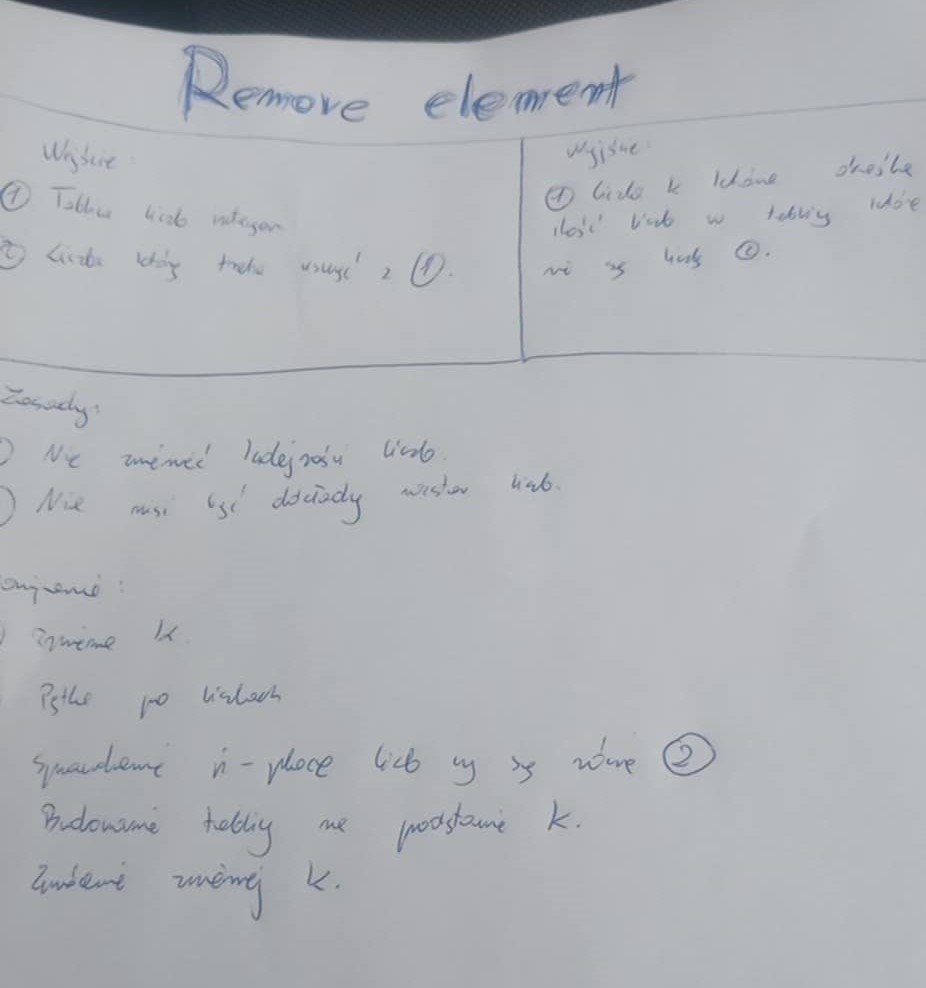 Remove element
Wejście:
① Tablica liczb integer
② Liczba którą trzeba usunąć z ①.
Wyjście:
① liczba k która określa
ilość liczb w tablicy które
nie są liczbą ②.
Zasady:
Nie zmienić kolejności liczb.
Nie musi być dokładny liczb.
Zmienna k.
Pętla po liczbach
Sprawdzenie in-place liczb czy są równe ②
Budowanie tablicy na podstawie k.
Zwrócenie zmiennej k.